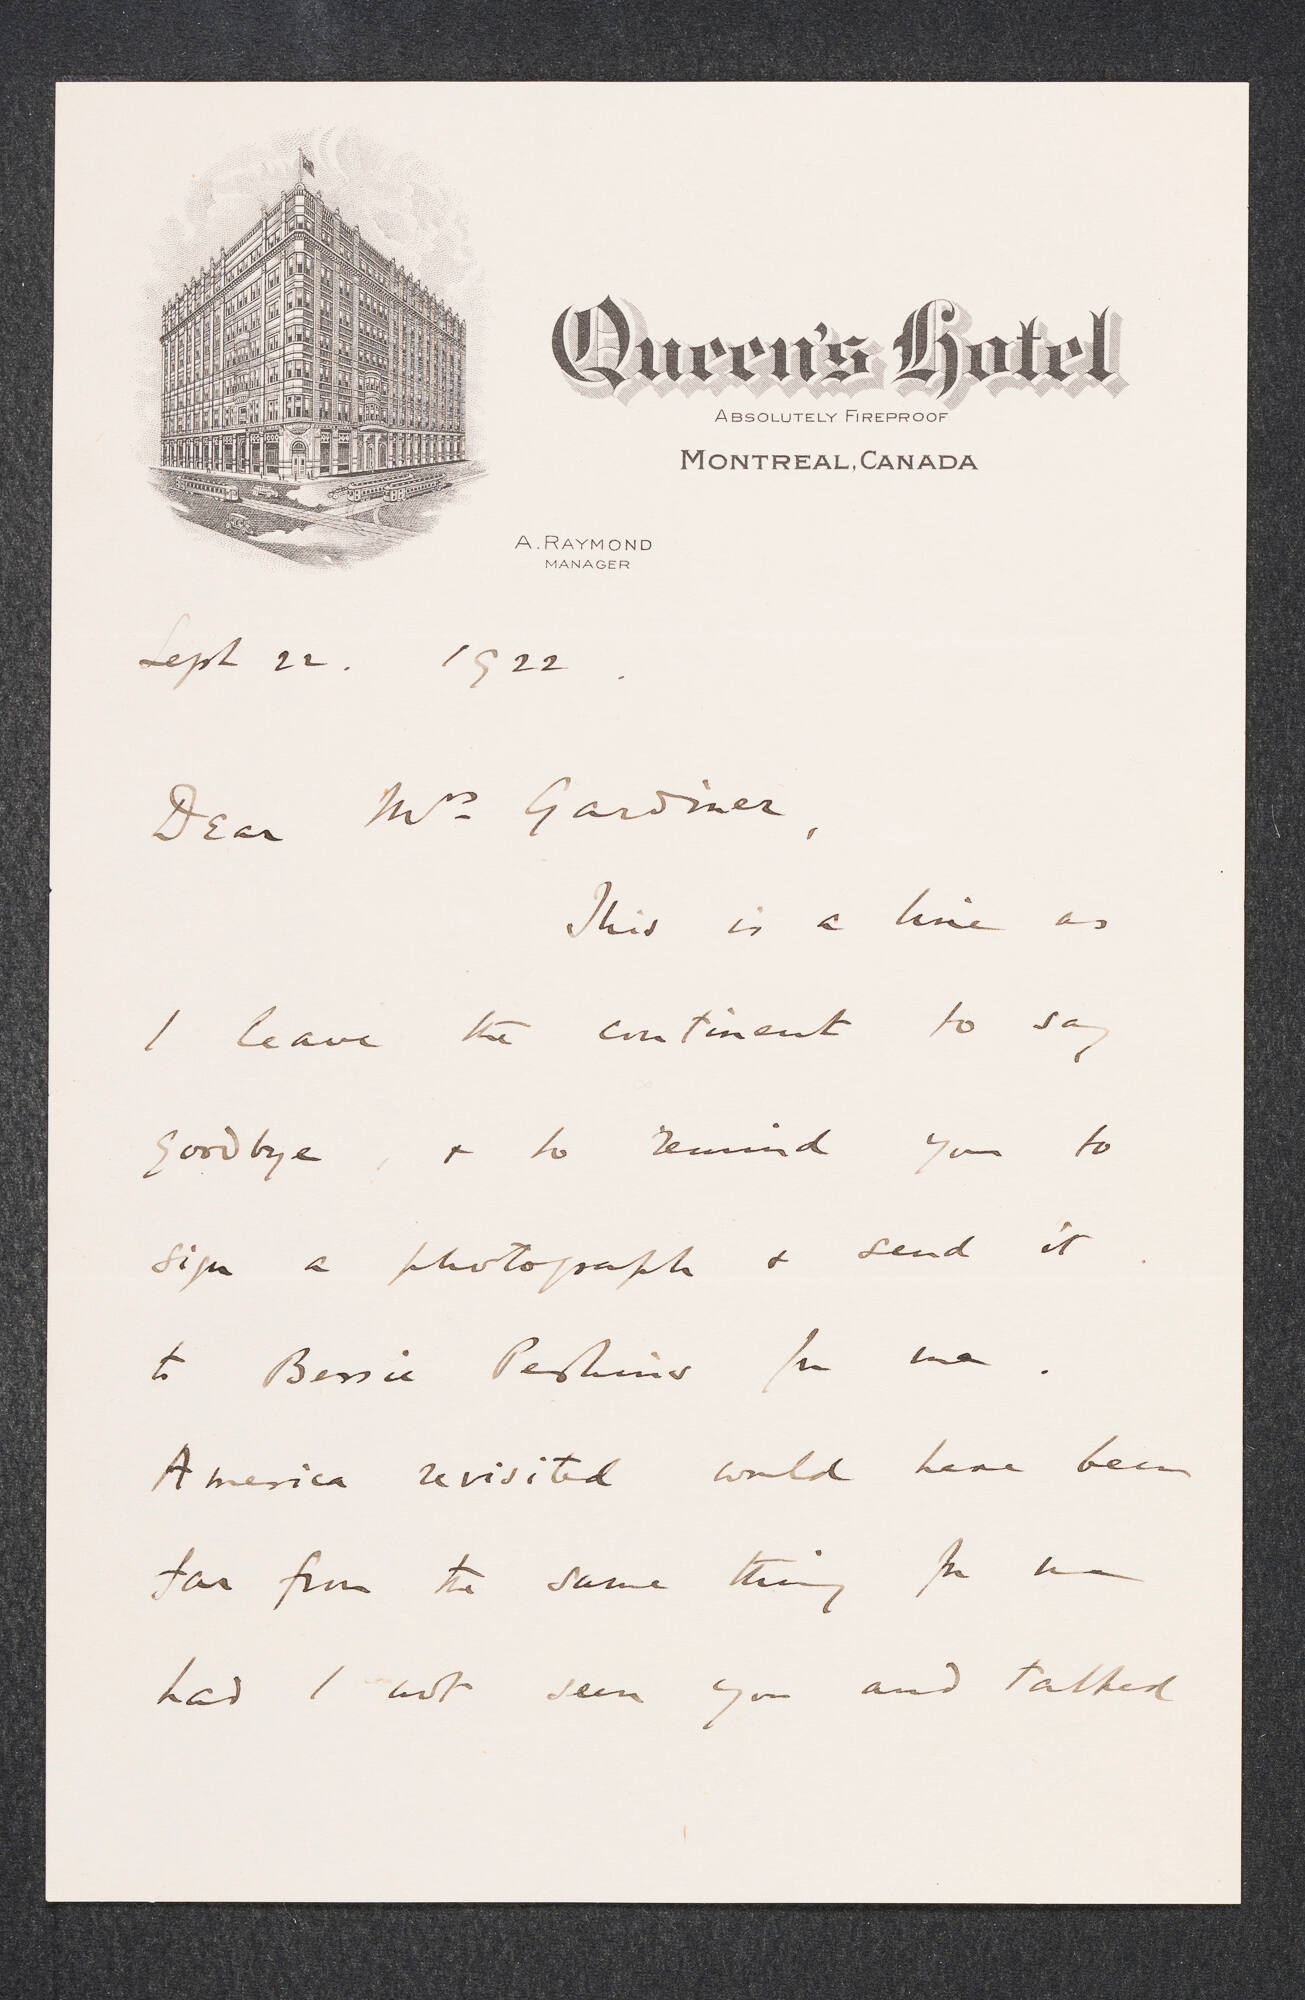 Queen's Hotel
ABSOLUTELY FIREPROOF
MONTREAL, CANADA
A. RAYMOND
MANAGER
Sept 22. 1922.
Dear Mrs Gardiner,
This is a line as
I leave the continent to say
goodbye, & to remind you to
sign a photograph & send it
to Bessie Perkins for me.
America revisited would have been
far from the same thing for me
had I not seen you and talked